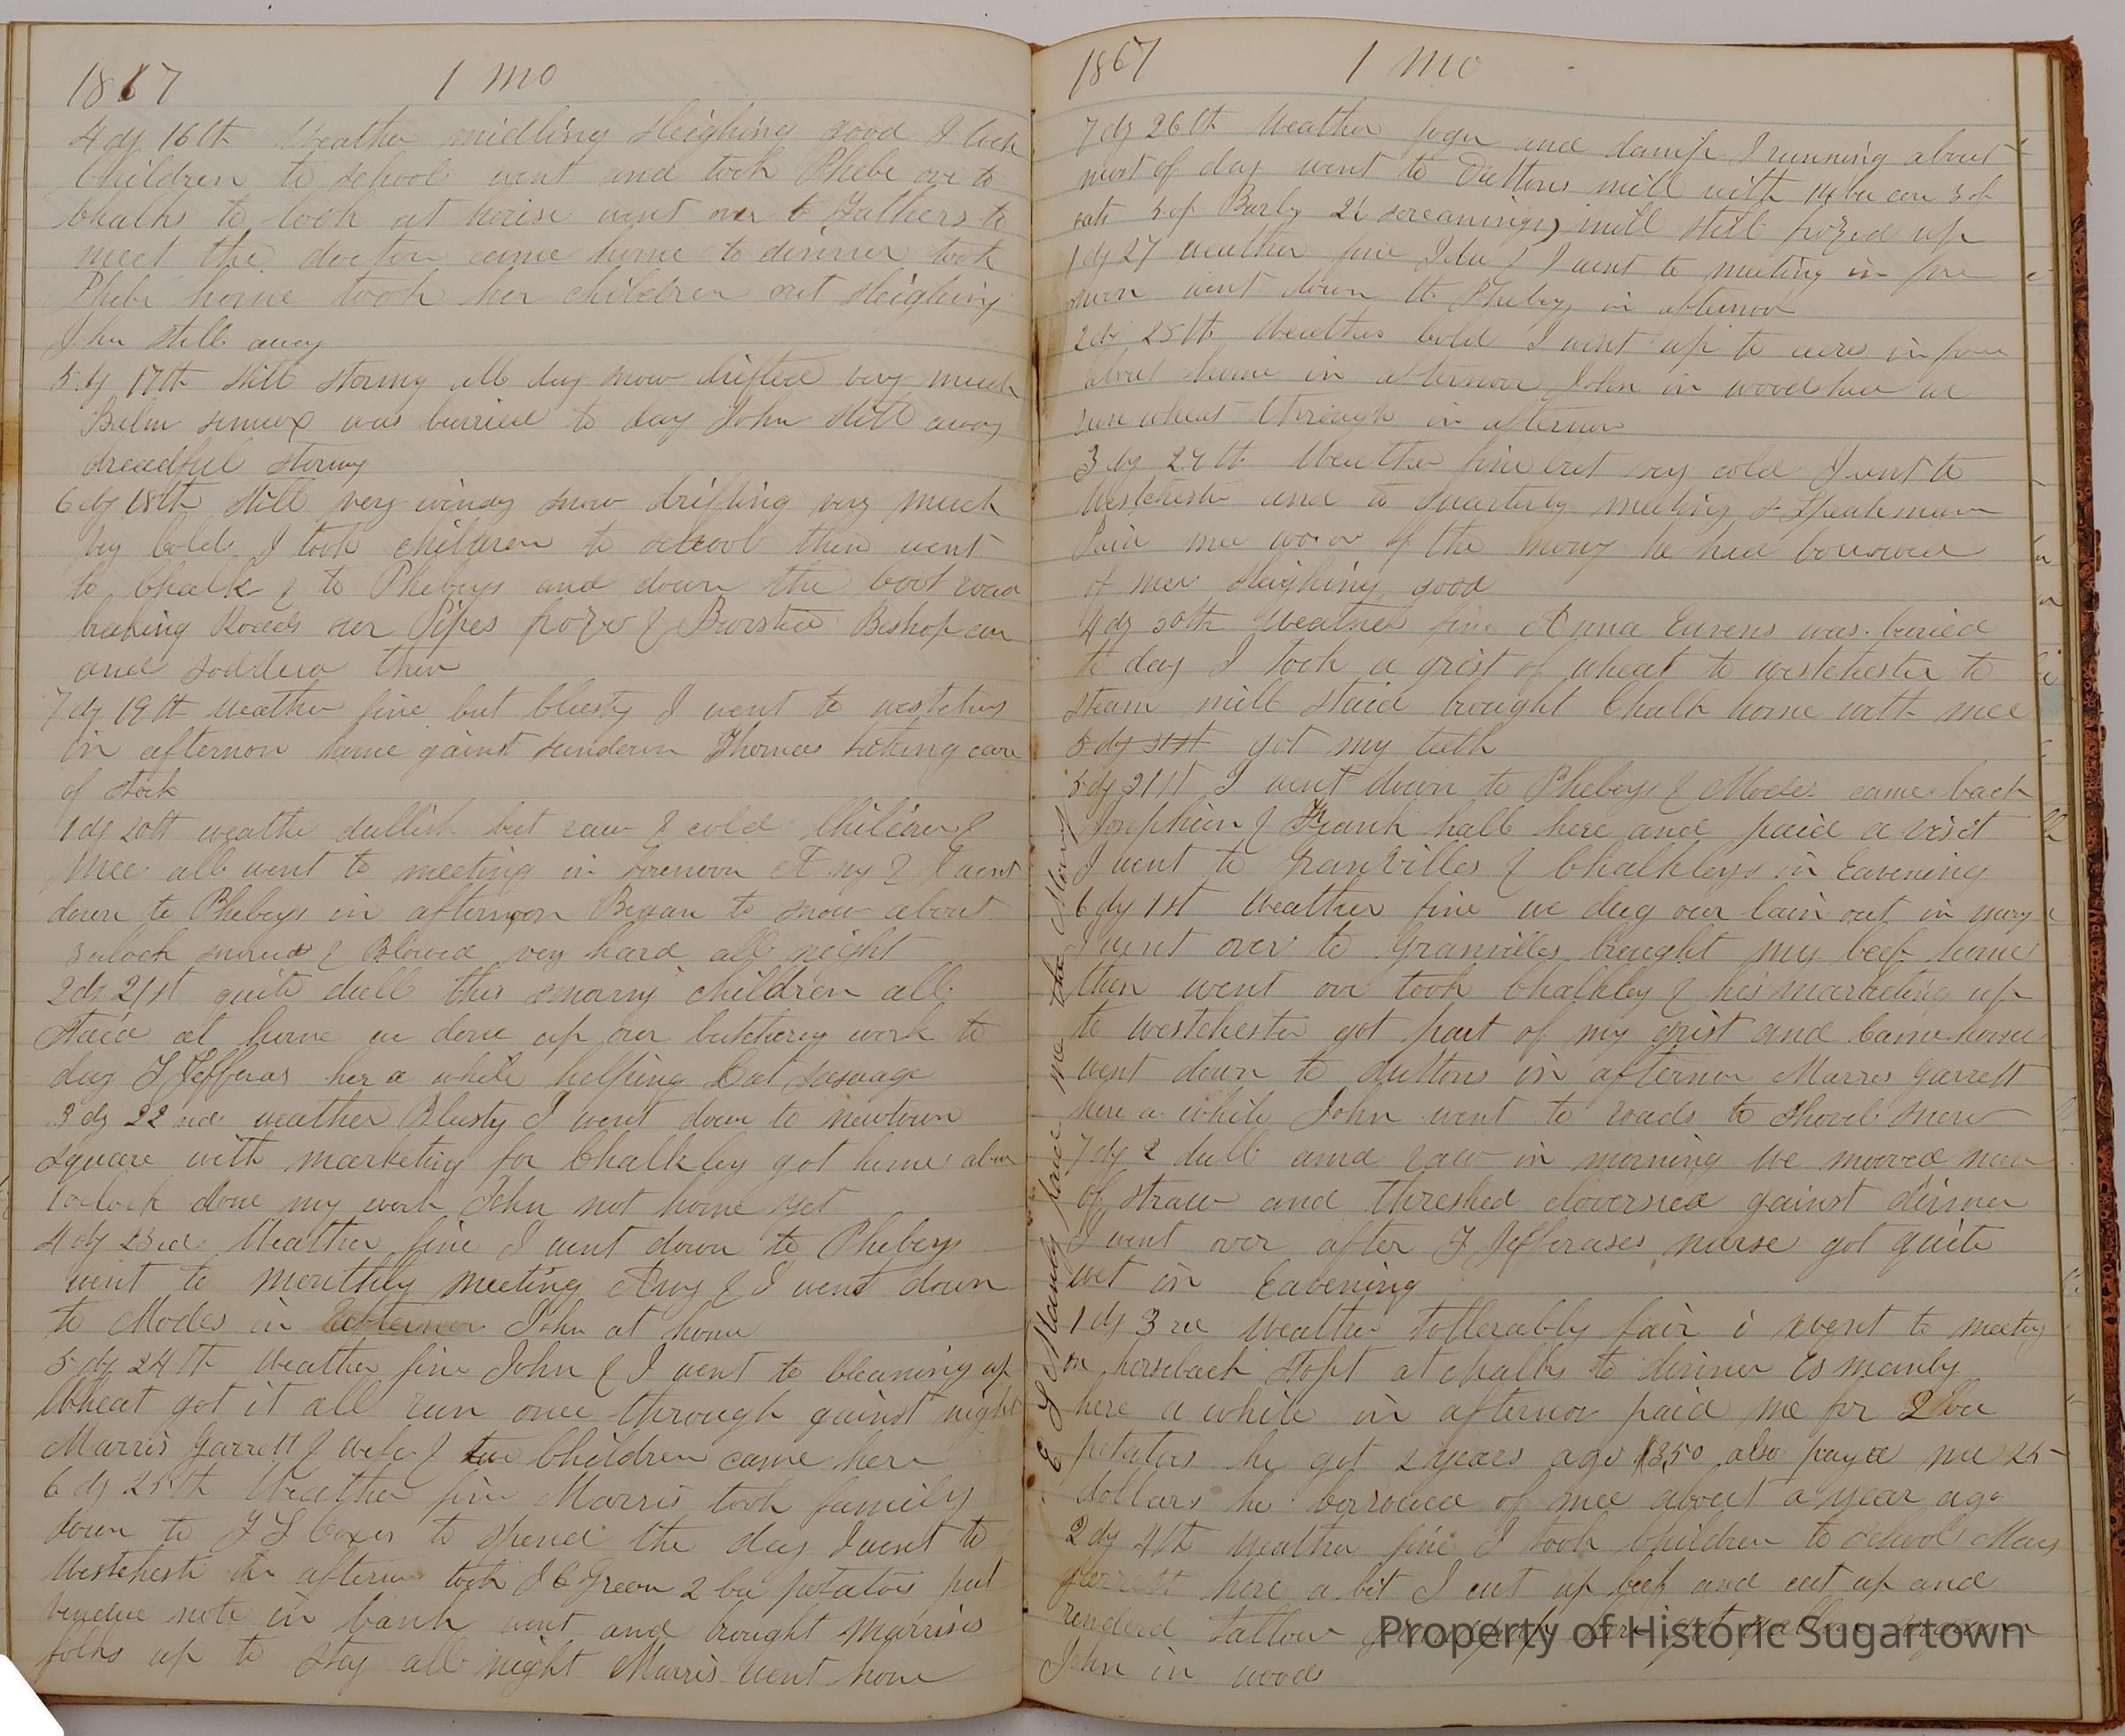 1867 1 mo
4 dy 16th Weather midling sleighing good I took
Children to school went and took Phebe over to
Chalks to look at house went over to Fathers to
meet the doctor came home to dinner took
Phebe home took her children out sleighing
John still away
5 dy 17th still stormy all day snow drifted very much
was burried to day John still away
dreadful stormy
6 dy 18th still very windy snow drifting very much
Cold I took children to school then went
to Chalk & to Phebeys and down the boot road
breaking Roads our Pipes froze & Bursted Bishop
and
7 dy 19th weather fine but blusty I went to
in afternon home gainst sundown Thomas taking care
of stock
1 dy 20th weathe dullish but raw & cold Children &
mee all went to meeting in forenoon Amy & I went
down to Phebeys in afternoon Began to snow about
3 oclock snowed & Blowed very hard all night
2 dy 21st quite dull this children all
staid at home we done up our butchery work to
day J Jefferas her a while helping Eat sasuage
3 dy 22nd weather Blusty I went down to newtown
square with marketing for Chalkley got home
oclock done my work John not home yet
4 dy 23rd Weather fine I went down to Phebeys
went to monthly meeting Amy & I went down
to Modes in afternon John at home
5 dy 24th Weather fine John & I went to Cleaning up
Wheat got it all run once through gainst night
Marris Garrett & wife & two Children came here
6 dy 25th Weather fine Marris took family
down to to spend the day I went to
Westchester in afternon took J C Green 2 bu potatoes put
vendue note in bank went and brought Marrises
folks up to stay all night Marris went home
1867 1 mo
7 dy 26th Weather and damp I running about
most of day went to Duttons mill with 14 bu 3 of
oats 5 of Barly 2½ screanings mill still frozed up
1 dy 27 weather fine Ida & I went to meeting in fore
noon went down to Phebeys in afternon
2 dy 28th Weather Cold I went up to in fore
about home in afternoon John in wood
run wheat through in afternon
3 dy 29th Weather fine but very cold I went to
Westchester and to Quarterly meeting
Paid mee of the mony he had borrowed
of mee sleighing good
4 dy 30th Weather fine Anna was buried
to day I took a grist of wheat to westchester to
steam mill staid brought Chalk home with mee
5 dy 31st got my teeth
5 dy 31st I went down to Phebeys & Modes came back
Josephien & Frank hall here and paid a visit
I went to Granvilles & Chalkleys in Eavening
6 dy 1st Weather fine we dug our lain out in
I went over to Granvilles brought my beef home
then went over took Chalkley & his marketing up
to westchester got part of my grist and Came home
went down to duttons in afternon Marris Garrett
here a while John went to roads to shovel snow
7 dy 2 dull amd raw in morning We mooved
of straw and threshed cloverseed gainst dinner
I went over after J Jefferases nurse got quite
wet in Eavening
1 dy 3rd Weather tollerably fair i went to meeting
on horseback stopt at chalks to dinner Es manly
here a while in afternon paid me for 2 bu
potatoes he got 2 years ago $3,50 also payed me 25
dollars he borrowed of mee about a year ago
2 dy 4th weather fine I took Children to school
Garrett here a bit I cut up beef and cut up and
renderd tallow
John in woods
E S Manly paid me the Mony
Property of Historic Sugartown